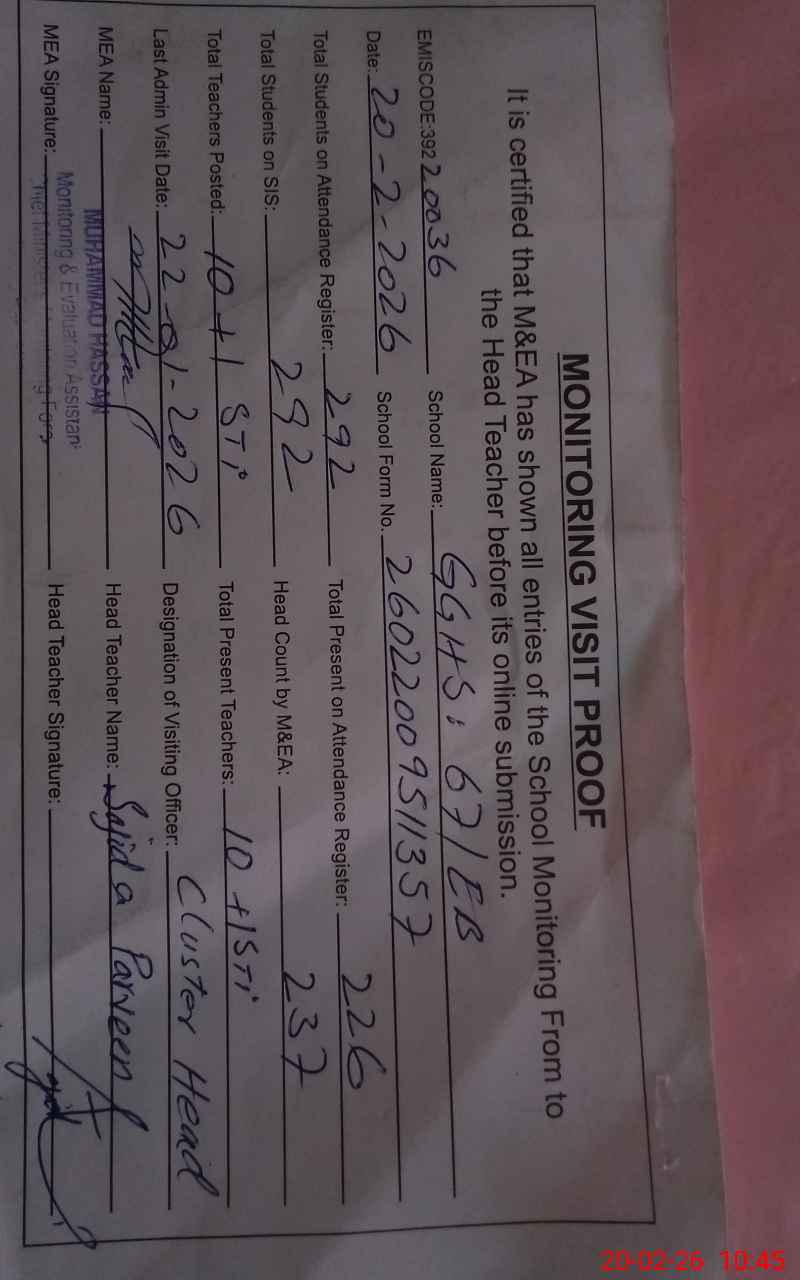 MONITORING VISIT PROOF
It is certified that M&EA has shown all entries of the School Monitoring From to
the Head Teacher before its online submission.
EMISCODE:39220036 School Name: GGHS: 67/EB
Date: 20-2-2026 School Form No. 26022009511357
Total Students on Attendance Register: 292 Total Present on Attendance Register: 226
Total Students on SIS: 292 Head Count by M&EA: 237
Total Teachers Posted: 10+1 STi Total Present Teachers: 10+1STi
Last Admin Visit Date: 22-01-2026 Designation of Visiting Officer: Cluster Head
MEA Name: MUHAMMAD HASSAN Head Teacher Name: Sajida Parveen
Monitoring & Evaluation Assistant
MEA Signature: Head Teacher Signature:
20-02-26 10:45